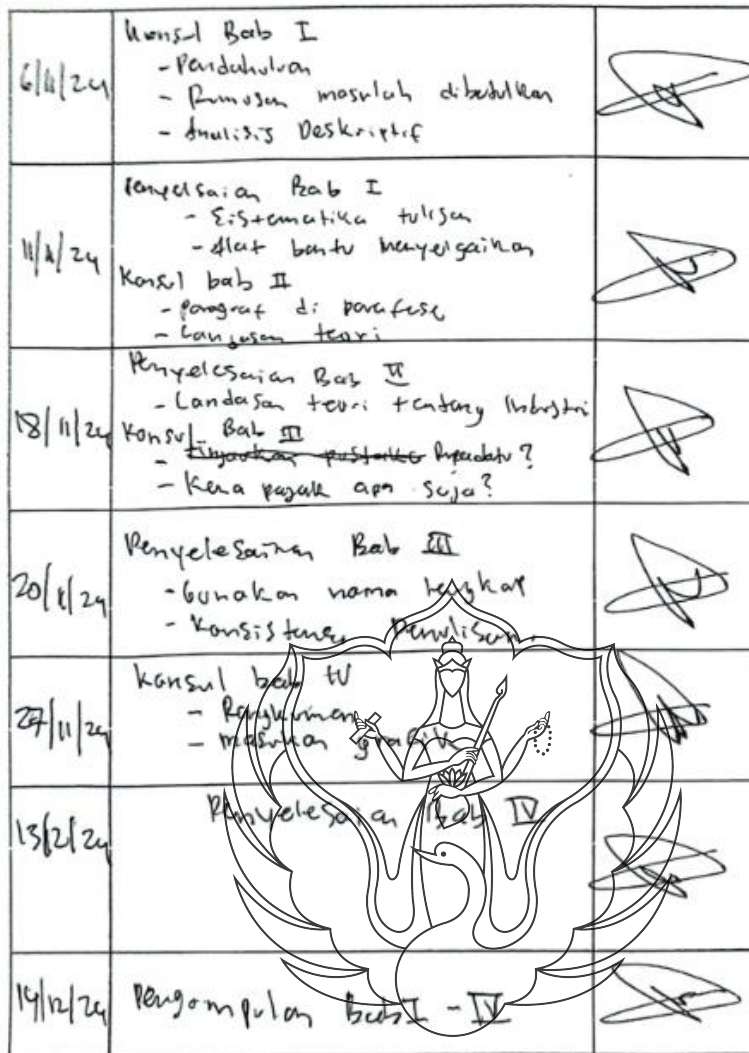 6/11/24
Konsul Bab I
- Pendahuluan
- Rumusan masalah dibetulkan
- Analisis Deskriptif
11/11/24
Penyelsaian Bab I
- Sistematika tulisan
- Alat bantu menyelsaikan
Konsul bab II
- paragraf di parafase
- Landasan teori
18/11/24
Penyelesaian Bab II
- Landasan teori tentang Industri
Konsul Bab III
- tinjauan pustaka
- Kena pajak apa saja?
20/11/24
Penyelesaian Bab III
- Gunakan nama lengkap
- Konsistensi Penulisan
27/11/24
Konsul bab IV
- Rangkuman
- masukan grafik
13/12/24
Penyelesaian Bab IV
19/12/24
Pengumpulan Bab I - IV